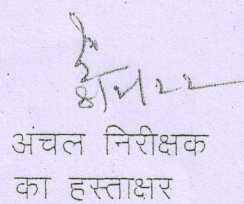 अंचल निरीक्षक
का हस्ताक्षर